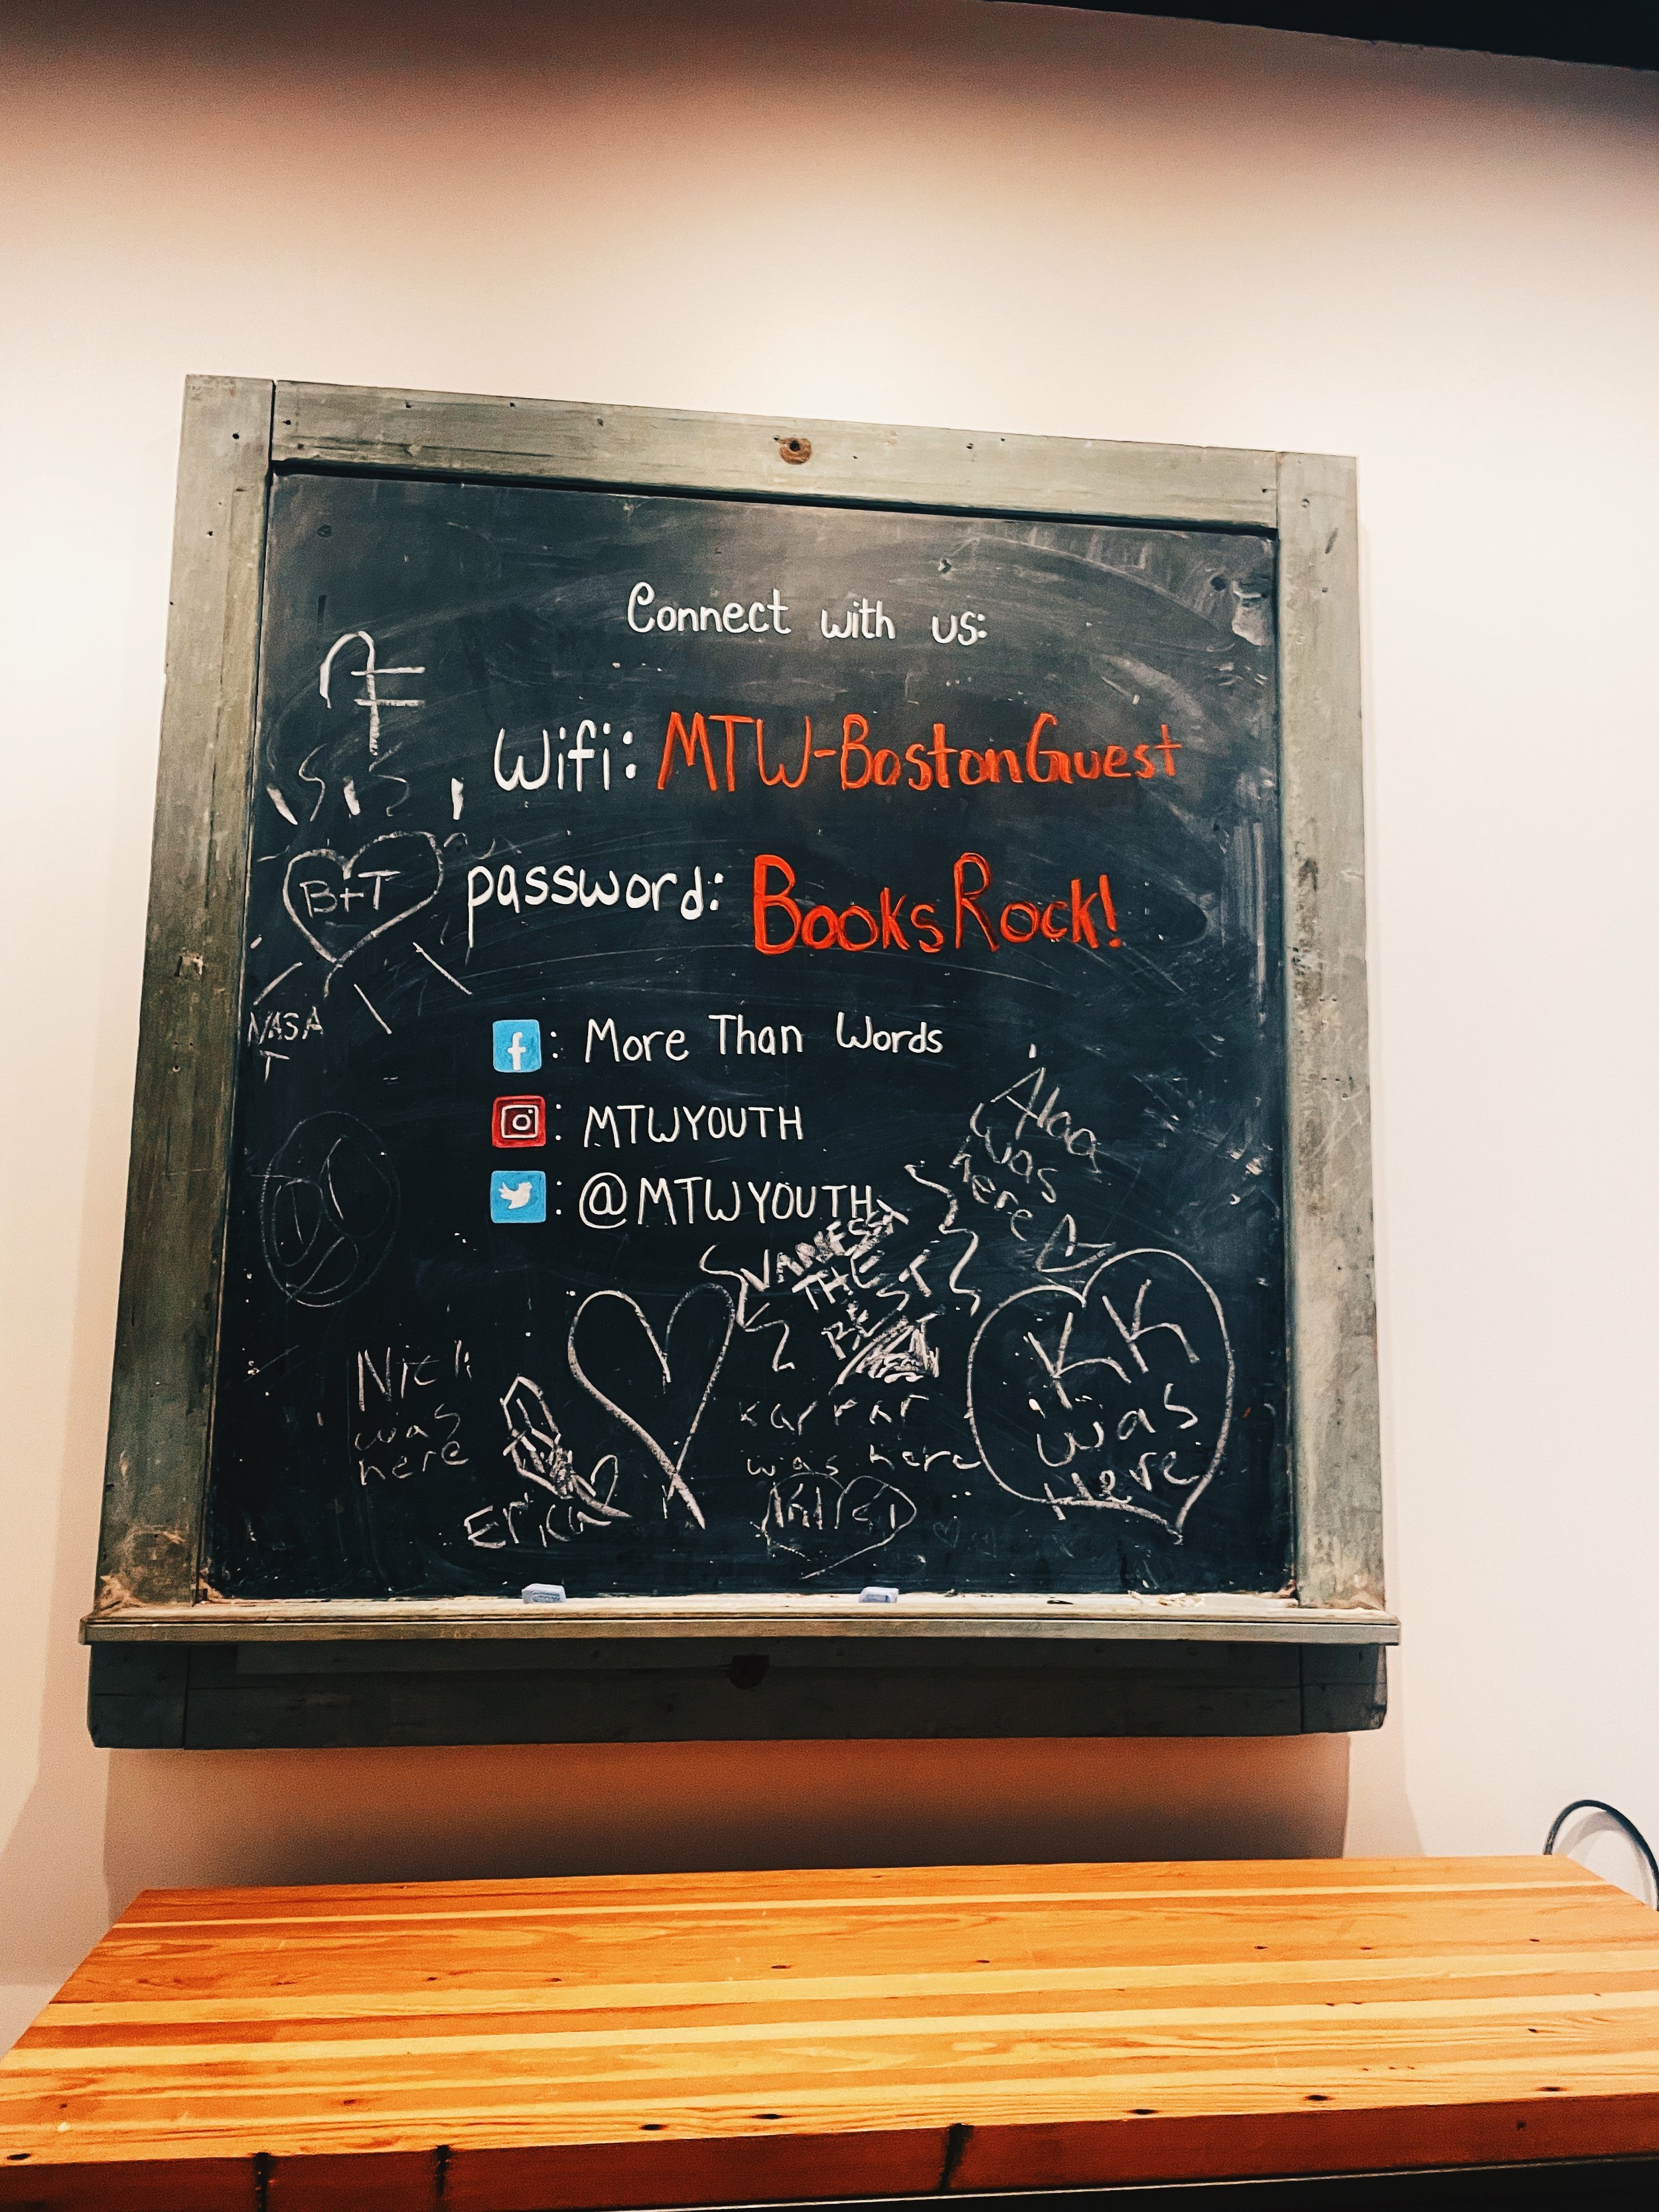 Connect with us:
Wifi: MTW-BostonGuest
password: BooksRock!
B+T
NASA
T
f: More Than Words
: MTWYOUTH
: @MTWYOUTH
Alaa
was
here
VANESSA
THE
BEST
KK
was
Here
was
here
karrar
was here
Erica